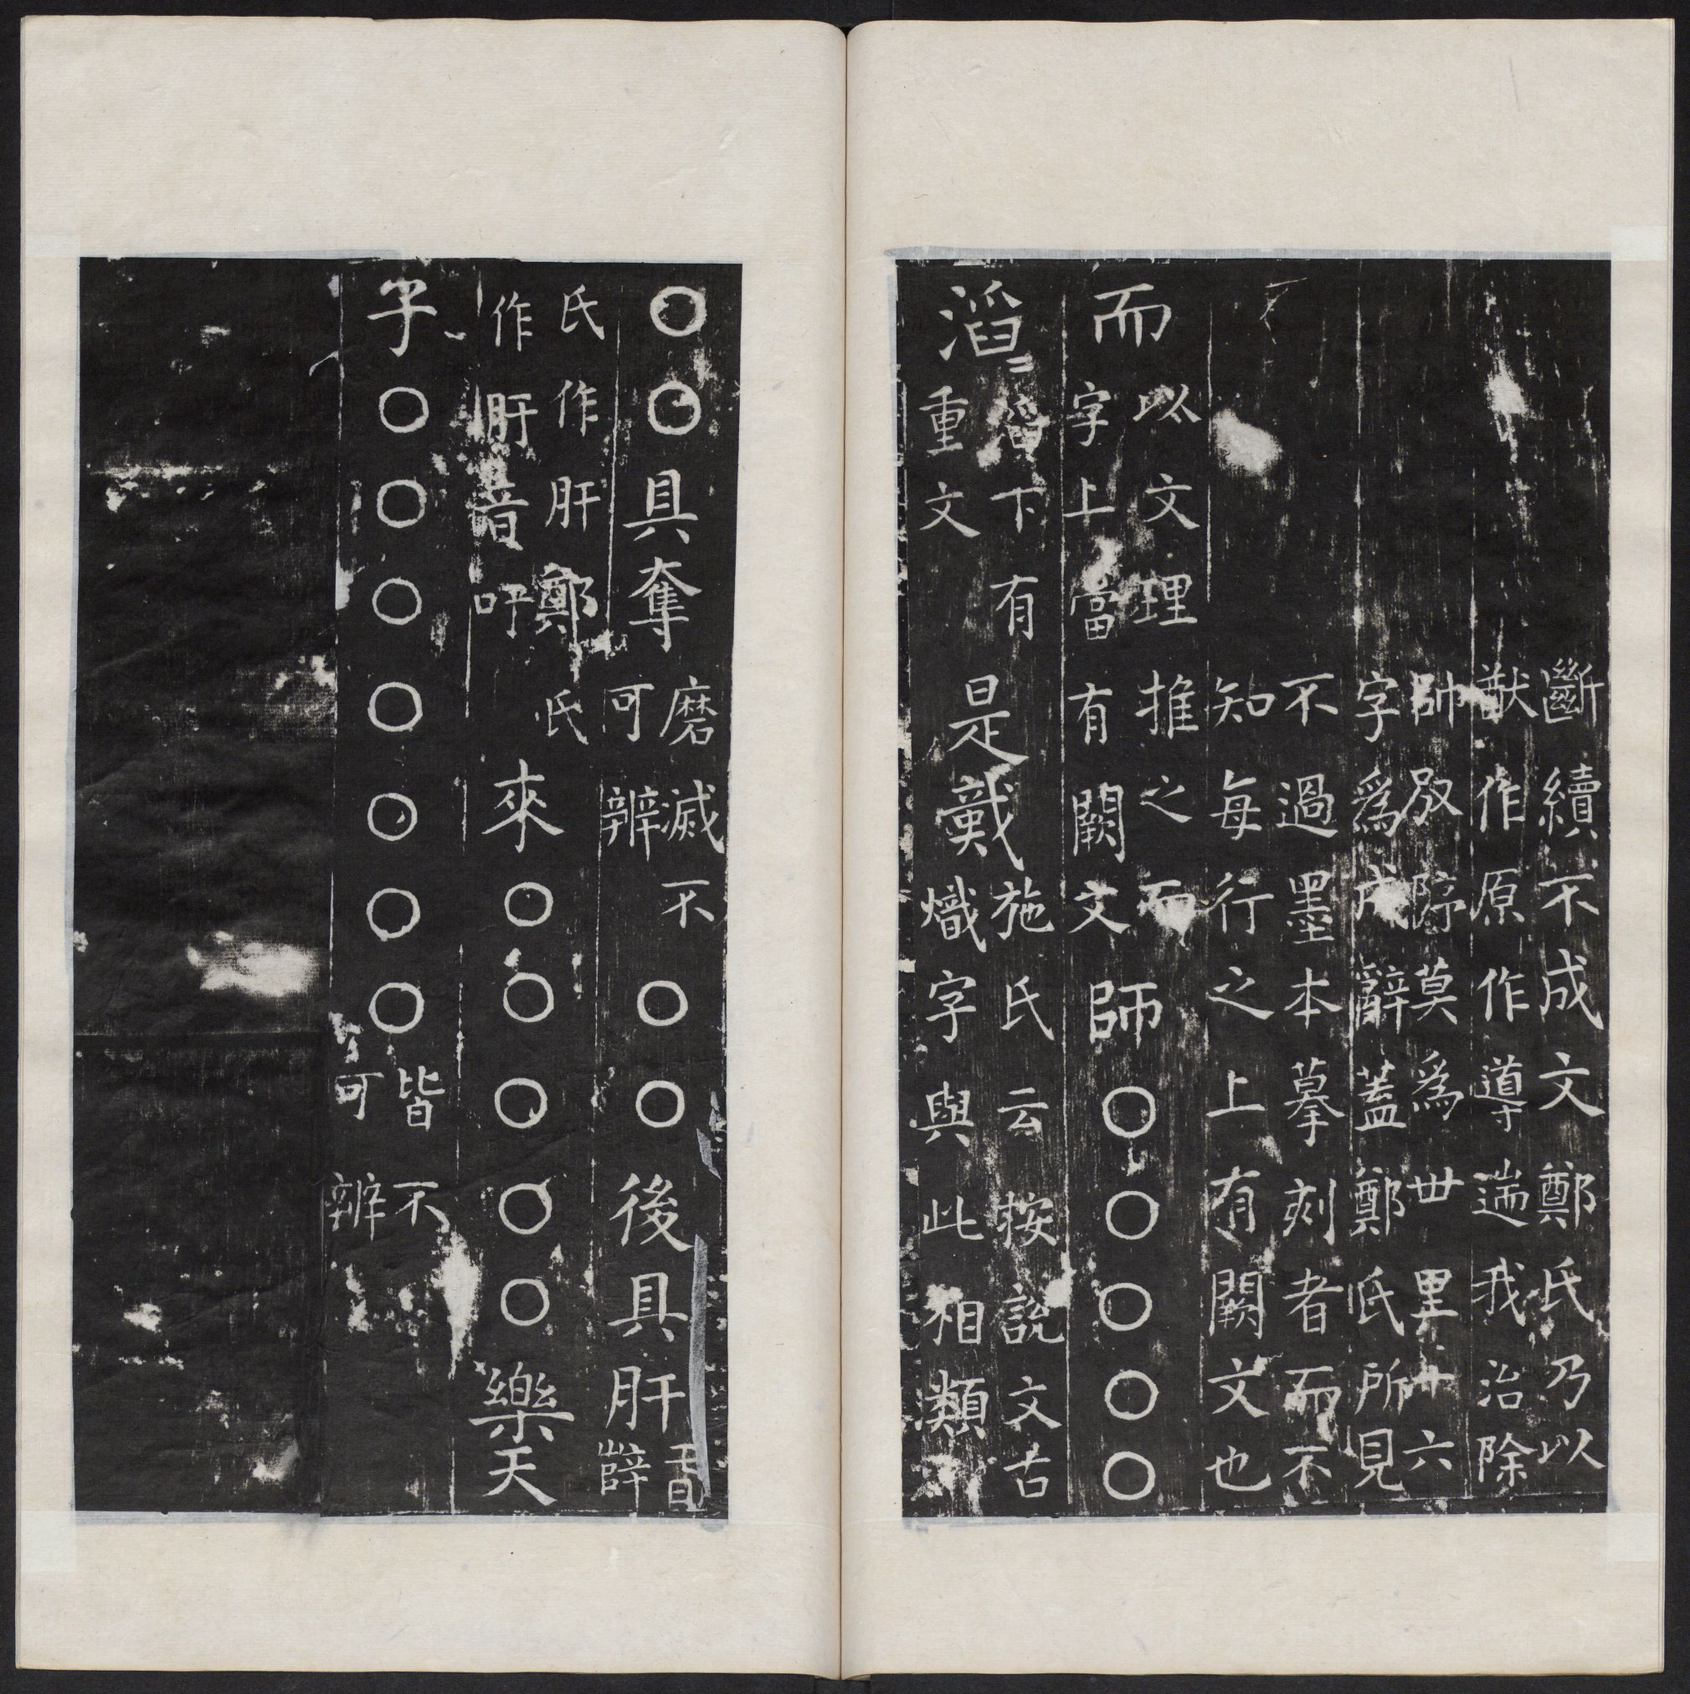 斷續不成文鄭氏乃以
猷作原作導遄我治除
帥莫爲丗里廾六
字爲成辭蓋鄭氏所見
不過墨本摹刻者而不
知每行之上有闕文也
而
以文理推之而
字上當有闕文
師○○○○○
滔=
滔下有
重文
是
施氏云按說文古
熾字與此相類
○○具奪
磨滅不
可辨
○○後具肝
薛
氏作肝鄭氏
作肝音吁
來○○○○○樂天
子○○○○○○○
皆不
可辨